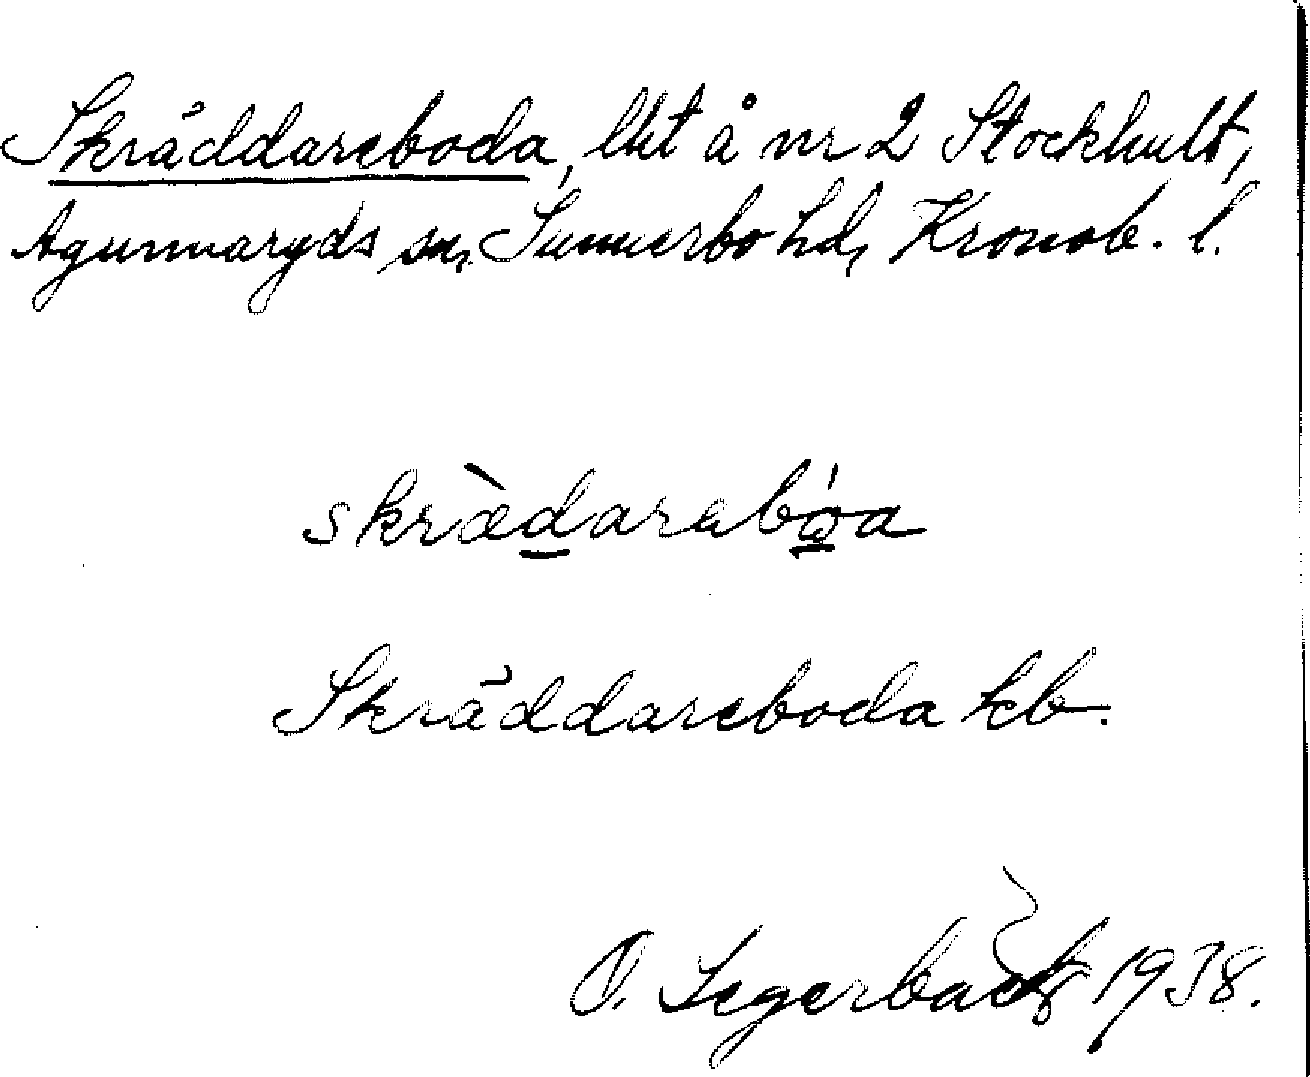 Skräddareboda, lht å nr 2 Stockhult,
Agunnaryds sn, Sunnerbo hd, Kronob. l.
skrædaraboa
Skräddareboda kb.
O. Segerbäck 1938.